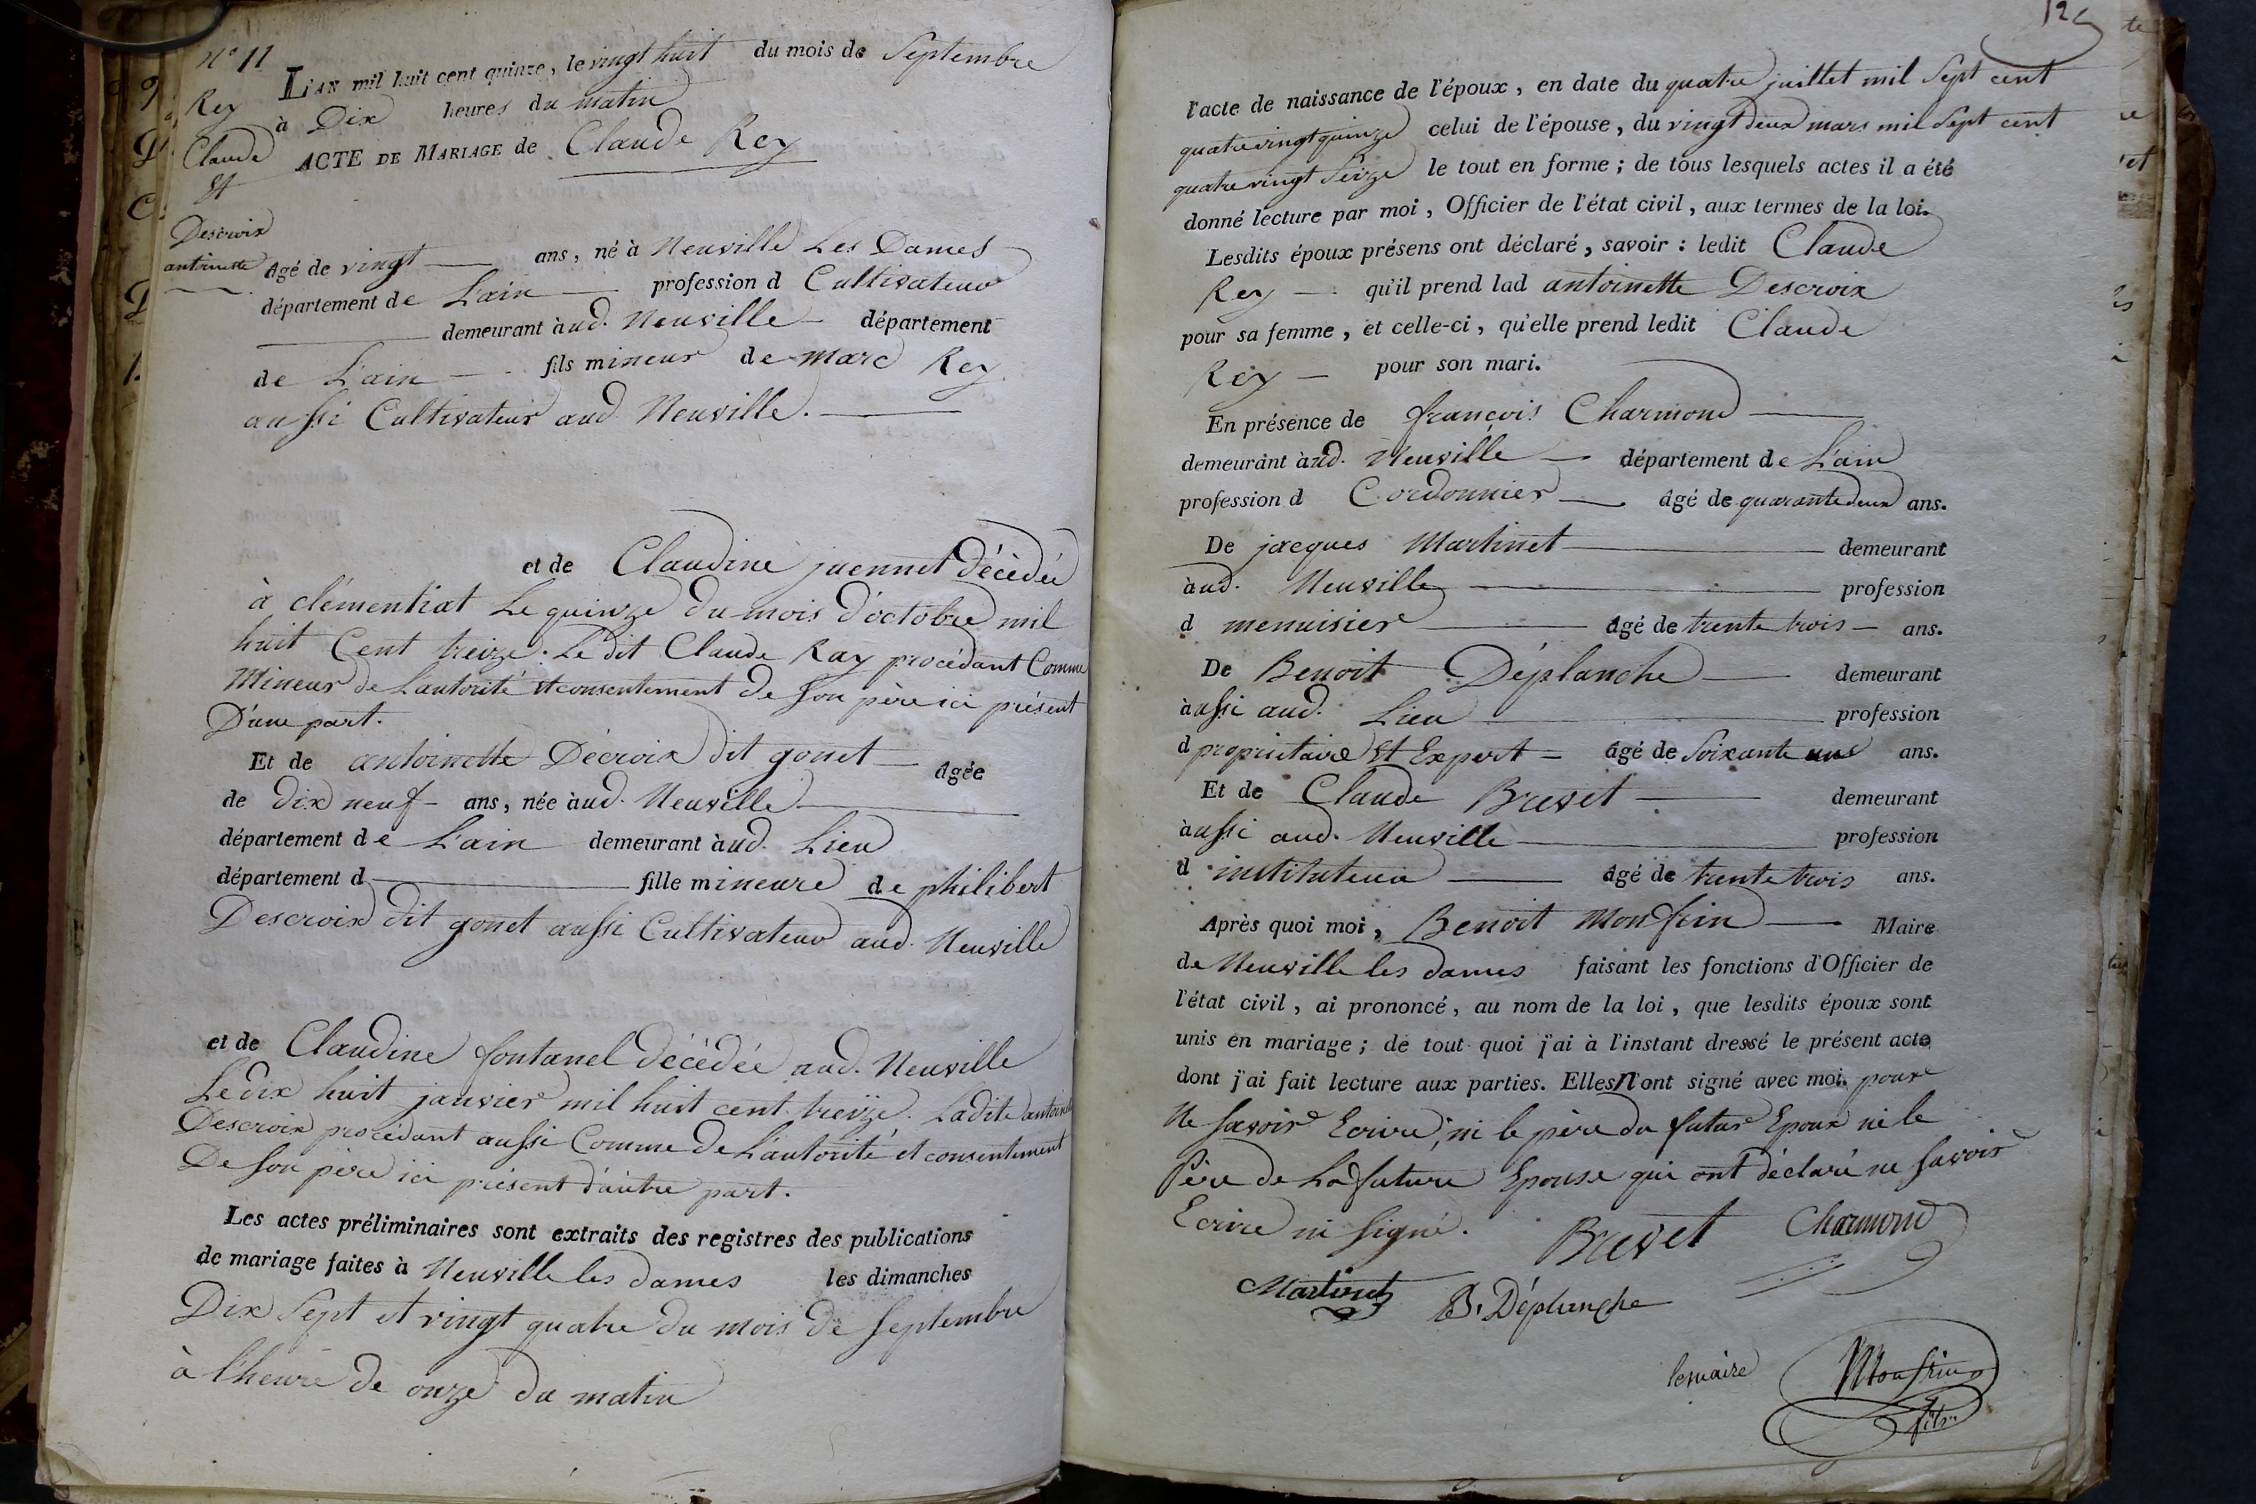 N° 11
Rey
Claude
Et
Descroix
antoinette
L'AN mil huit cent quinze, le vingt huit du mois de Septembre
à Dix heures du matin
ACTE DE MARIAGE de Claude Rey
âgé de vingt ans, né à Neuville Les Dames
département de L'ain profession d Cultivateur
demeurant à aud. Neuville département
de L'ain fils mineur de marc Rey
aussi Cultivateur aud. Neuville.
et de Claudine juennet décèdée
à clémentiat Le quinze du mois d'octobre mil
huit Cent treize. Le dit Claude Ray procédant Comme
Mineur de L'autorité et consentement de Son père ici présent
D'une part.
Et de antoinette Décroix dit gonet âgée
de dix neuf ans, née à aud. Neuville
département de L'ain demeurant à aud. Lieu
département d fille mineure de philibert
Descroix dit gonet aussi Cultivateur aud. Neuville
et de Claudine fontanel décèdée aud. Neuville
Le dix huit janvier mil huit cent treize. Ladite antoinette
Descroix procédant aussi Comme de L'autorité et consentement
De Son père ici présent d'autre part.
Les actes préliminaires sont extraits des registres des publications
de mariage faites à Neuville les dames les dimanches
Dix Sept et vingt quatre du mois de Septembre
à l'heure de onze du matin
l'acte de naissance de l'époux, en date du quatre juillet mil Sept cent
quatrevingtquinze celui de l'épouse, du vingt deux mars mil Sept cent
quatrevingt Seize le tout en forme ; de tous lesquels actes il a été
donné lecture par moi, Officier de l'état civil, aux termes de la loi.
Lesdits époux présens ont déclaré, savoir : ledit Claude
Rey qu'il prend lad antoinette Descroix
pour sa femme, et celle-ci, qu'elle prend ledit Claude
Rey pour son mari.
En présence de françois Charmond
demeurant à aud. Neuville département de L'ain
profession d Cordonnier âgé de quarantedeux ans.
De jacques Martinet demeurant
à aud. Neuville profession
d menuisier âgé de trente trois ans.
De Benoit Déplanche demeurant
à aussi aud. Lieu profession
d propriétaire Et Expert âgé de Soixante uns ans.
Et de Claude Brevet demeurant
à aussi aud. Neuville profession
d instituteur âgé de trente trois ans.
Après quoi moi, Benoit Monfrin Maire
de Neuville les dames faisant les fonctions d'Officier de
l'état civil, ai prononcé, au nom de la loi, que lesdits époux sont
unis en mariage ; de tout quoi j'ai à l'instant dressé le présent acte
dont j'ai fait lecture aux parties. Elles n'ont signé avec moi. pour
Ne Savoir Ecrire, ni le père du futur Epoux ni le
Père de La future Epouse qui ont déclaré ne Savoir
Ecrire ni Signé. Brevet Charmond
Martinet B. Déplanche
le maire Monfrin
fils